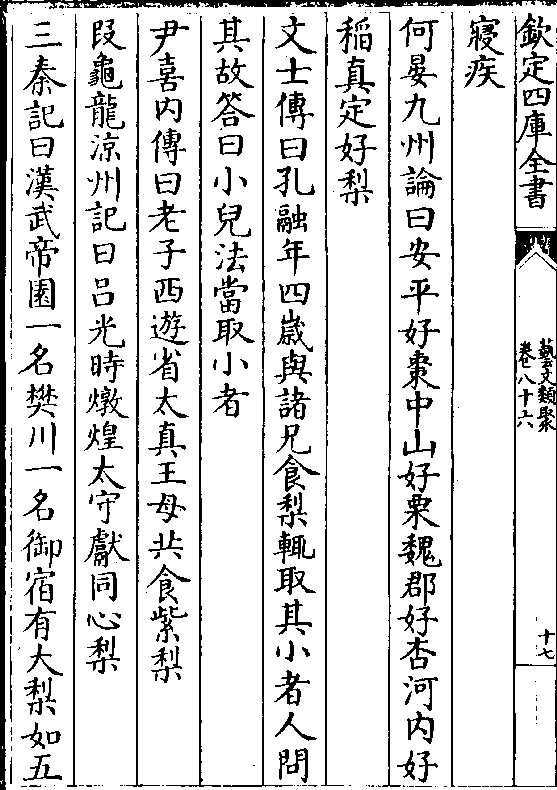 欽定四庫全書
藝文類聚
卷八十六
十七
寢疾
何晏九州論曰安平好棗中山好栗魏郡好杏河内好
稻真定好梨
文士傳曰孔融年四歲與諸兄食梨輒取其小者人問
其故答曰小兒法當取小者
尹喜内傳曰老子西遊省太真王母共食紫梨
段龜龍涼州記曰吕光時燉煌太守獻同心梨
三秦記曰漢武帝園一名樊川一名御宿有大梨如五